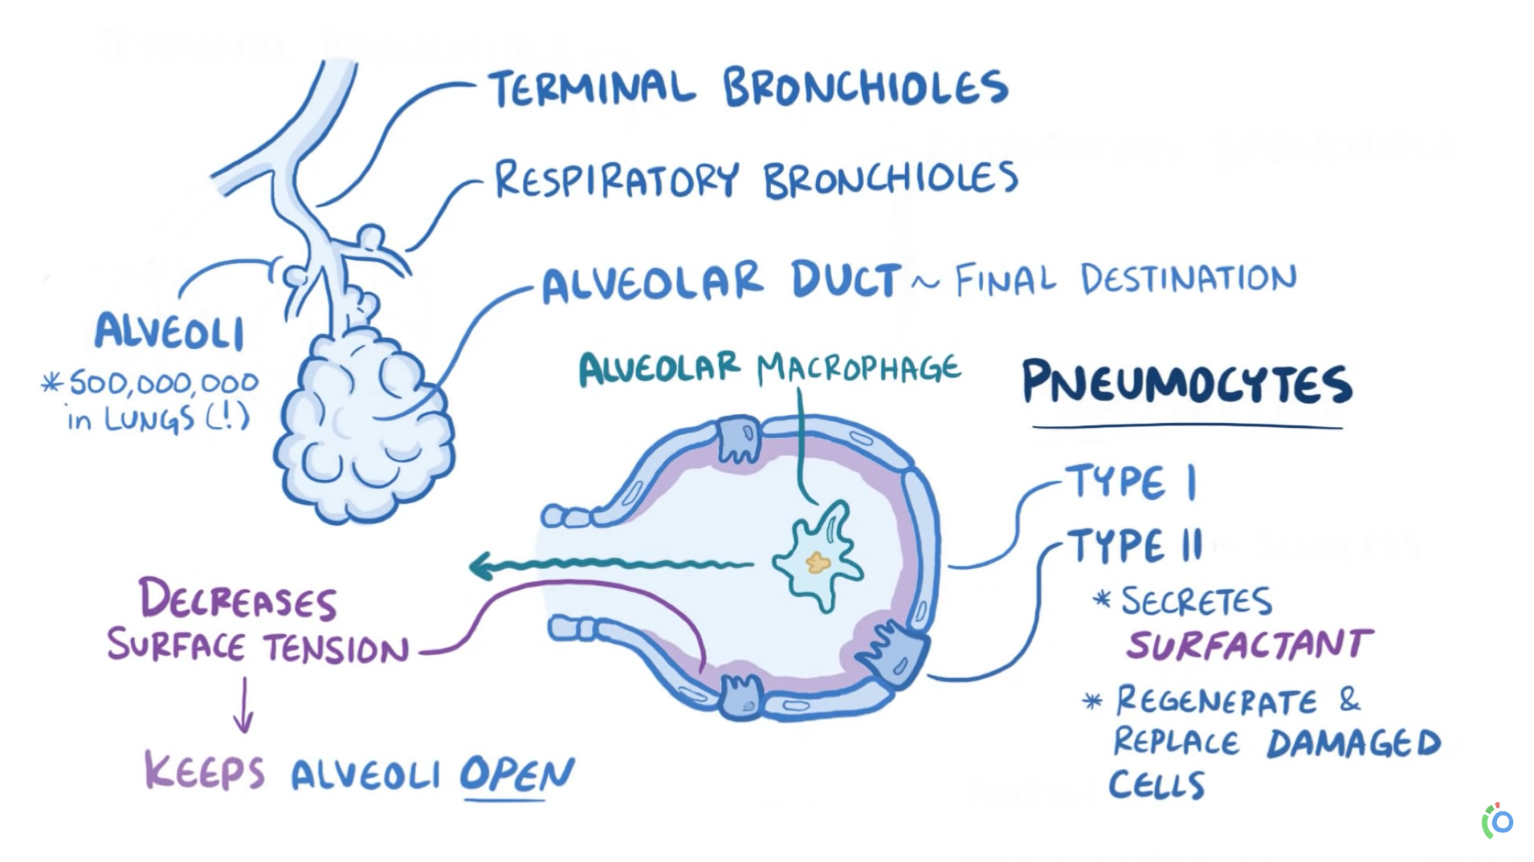 TERMINAL BRONCHIOLES
RESPIRATORY BRONCHIOLES
ALVEOLAR DUCT ~ FINAL DESTINATION
ALVEOLI
* 500,000,000
in LUNGS (!)
ALVEOLAR MACROPHAGE
PNEUMOCYTES
TYPE I
TYPE II
* SECRETES
SURFACTANT
* REGENERATE &
REPLACE DAMAGED
CELLS
DECREASES
SURFACE TENSION
KEEPS ALVEOLI OPEN